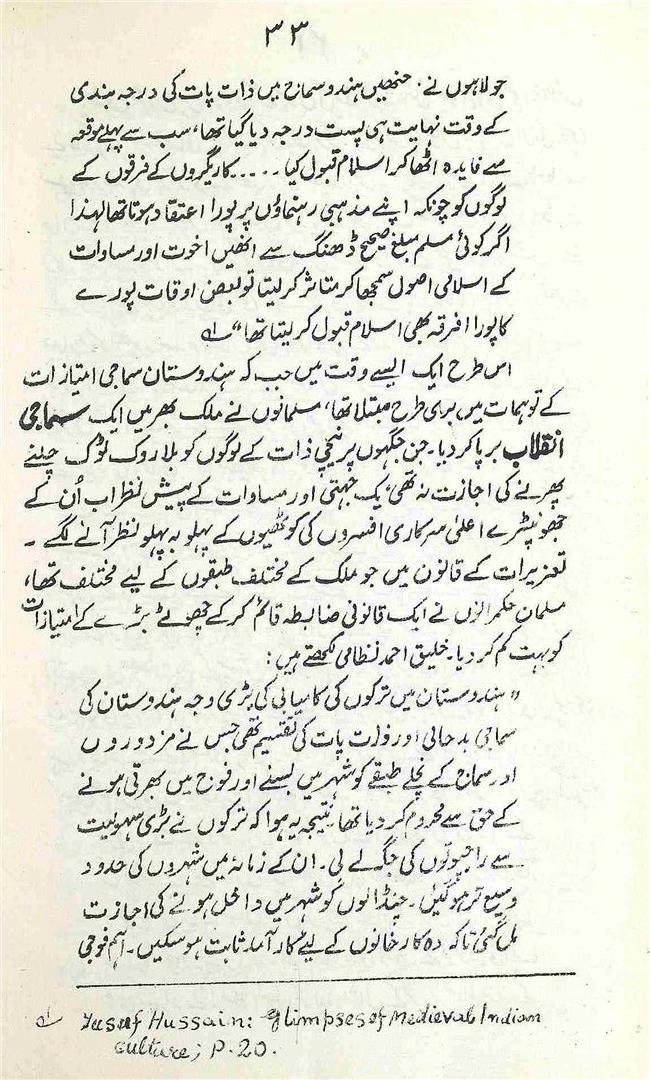 ۳۳
جولاہوں نے، جنھیں ہندو سماج میں ذات پات کی درجہ بندی
کے وقت نہایت ہی پست درجہ دیا گیا تھا، سب سے پہلے موقعہ
سے فایدہ اٹھا کر اسلام قبول کیا ..... کاریگروں کے فرقوں کے
لوگوں کو چونکہ اپنے مذہبی رہنماؤں پر پورا اعتقاد ہوتا تھا لہذا
اگر کوئی مسلم مبلغ صحیح ڈھنگ سے انھیں اخوت اور مساوات
کے اسلامی اصول سمجھا کر متاثر کر لیتا تو بعض اوقات پورے
کا پورا فرقہ بھی اسلام قبول کر لیتا تھا“ ؂۱
اس طرح ایک ایسے وقت میں جب کہ ہندوستان سماجی امتیازات
کے توہمات میں بری طرح مبتلا تھا، مسلمانوں نے ملک بھر میں ایک سماجی
انقلاب برپا کر دیا۔ جن جگہوں پر نیچی ذات کے لوگوں کو بلا روک ٹوک چلنے
پھرنے کی اجازت نہ تھی، یک جہتی اور مساوات کے پیش نظر اب اُن کے
جھونپڑے اعلیٰ سرکاری افسروں کی کوٹھیوں کے پہلو بہ پہلو نظر آنے لگے۔
تعزیرات کے قانون میں جو ملک کے مختلف طبقوں کے لیے مختلف تھا،
مسلمان حکمرانوں نے ایک قانونی ضابطہ قائم کر کے چھوٹے بڑے کے امتیازات
کو بہت کم کر دیا۔ خلیق احمد نظامی لکھتے ہیں:
”ہندوستان میں ترکوں کی کامیابی کی بڑی وجہ ہندوستان کی
سماجی بدحالی اور ذات پات کی تقسیم تھی جس نے مزدوروں
اور سماج کے نچلے طبقے کو شہر میں بسنے اور فوج میں بھرتی ہونے
کے حق سے محروم کر دیا تھا۔ نتیجہ یہ ہوا کہ ترکوں نے بڑی سہولیت
سے راجپوتوں کی جگہ لے لی۔ ان کے زمانہ میں شہروں کی حدود
وسیع تر ہو گئیں۔ چنڈالوں کو شہر میں داخل ہونے کی اجازت
مل گئی تاکہ وہ کارخانوں کے لیے کارآمد ثابت ہو سکیں۔ اہم فوجی
؂۱ Yusuf Hussain: Glimpses of Medieval Indian
culture; P. 20.